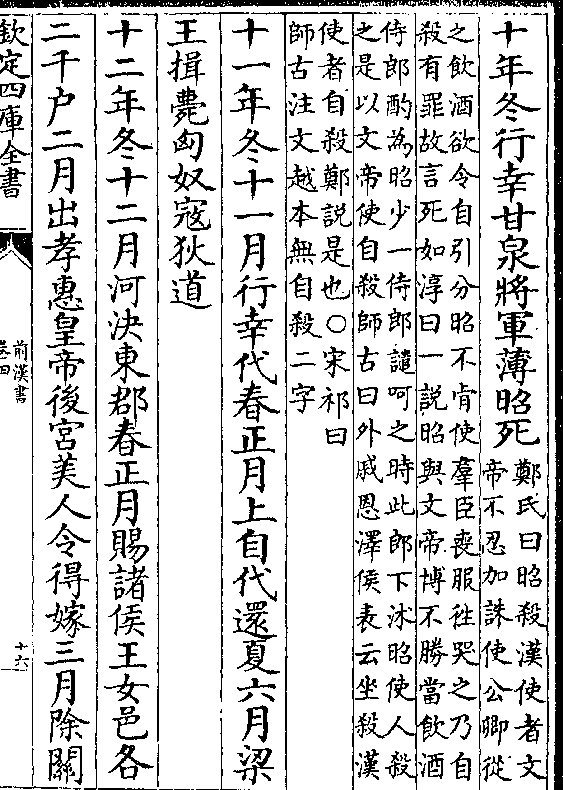 十年冬行幸甘泉將軍薄昭死
鄭氏曰昭殺漢使者文
帝不忍加誅使公卿從
之飲酒欲令自引分昭不肯使羣臣喪服徃哭之乃自
殺有罪故言死如淳曰一說昭與文帝博不勝當飲酒
侍郎酌為昭少一侍郎譴呵之時此郎下沐昭使人殺
之是以文帝使自殺師古曰外戚恩澤侯表云坐殺漢
使者自殺鄭說是也○宋祁曰
師古注文越本無自殺二字
十一年冬十一月行幸代春正月上自代還夏六月梁
王揖薨匈奴寇狄道
十二年冬十二月河決東郡春正月賜諸侯王女邑各
二千户二月出孝惠皇帝後宮美人令得嫁三月除關
欽定四庫全書
前漢書
卷四
十六